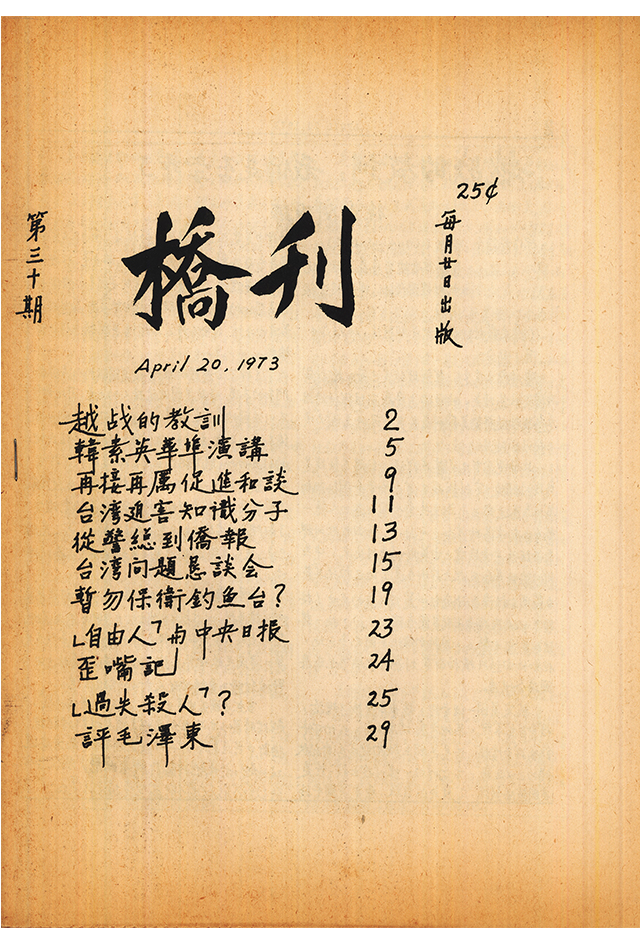 25¢
每月廿日出版
第三十期
橋刊
April 20, 1973
越战的教訓 2
韓素英華埠演講 5
再接再厲促進和談 9
台湾迫害知識分子 11
從警總到僑報 13
台湾问題恳談会 15
暫勿保衛釣魚台? 19
「自由人」与中央日报 23
歪嘴記 24
「過失殺人」? 25
評毛澤東 29